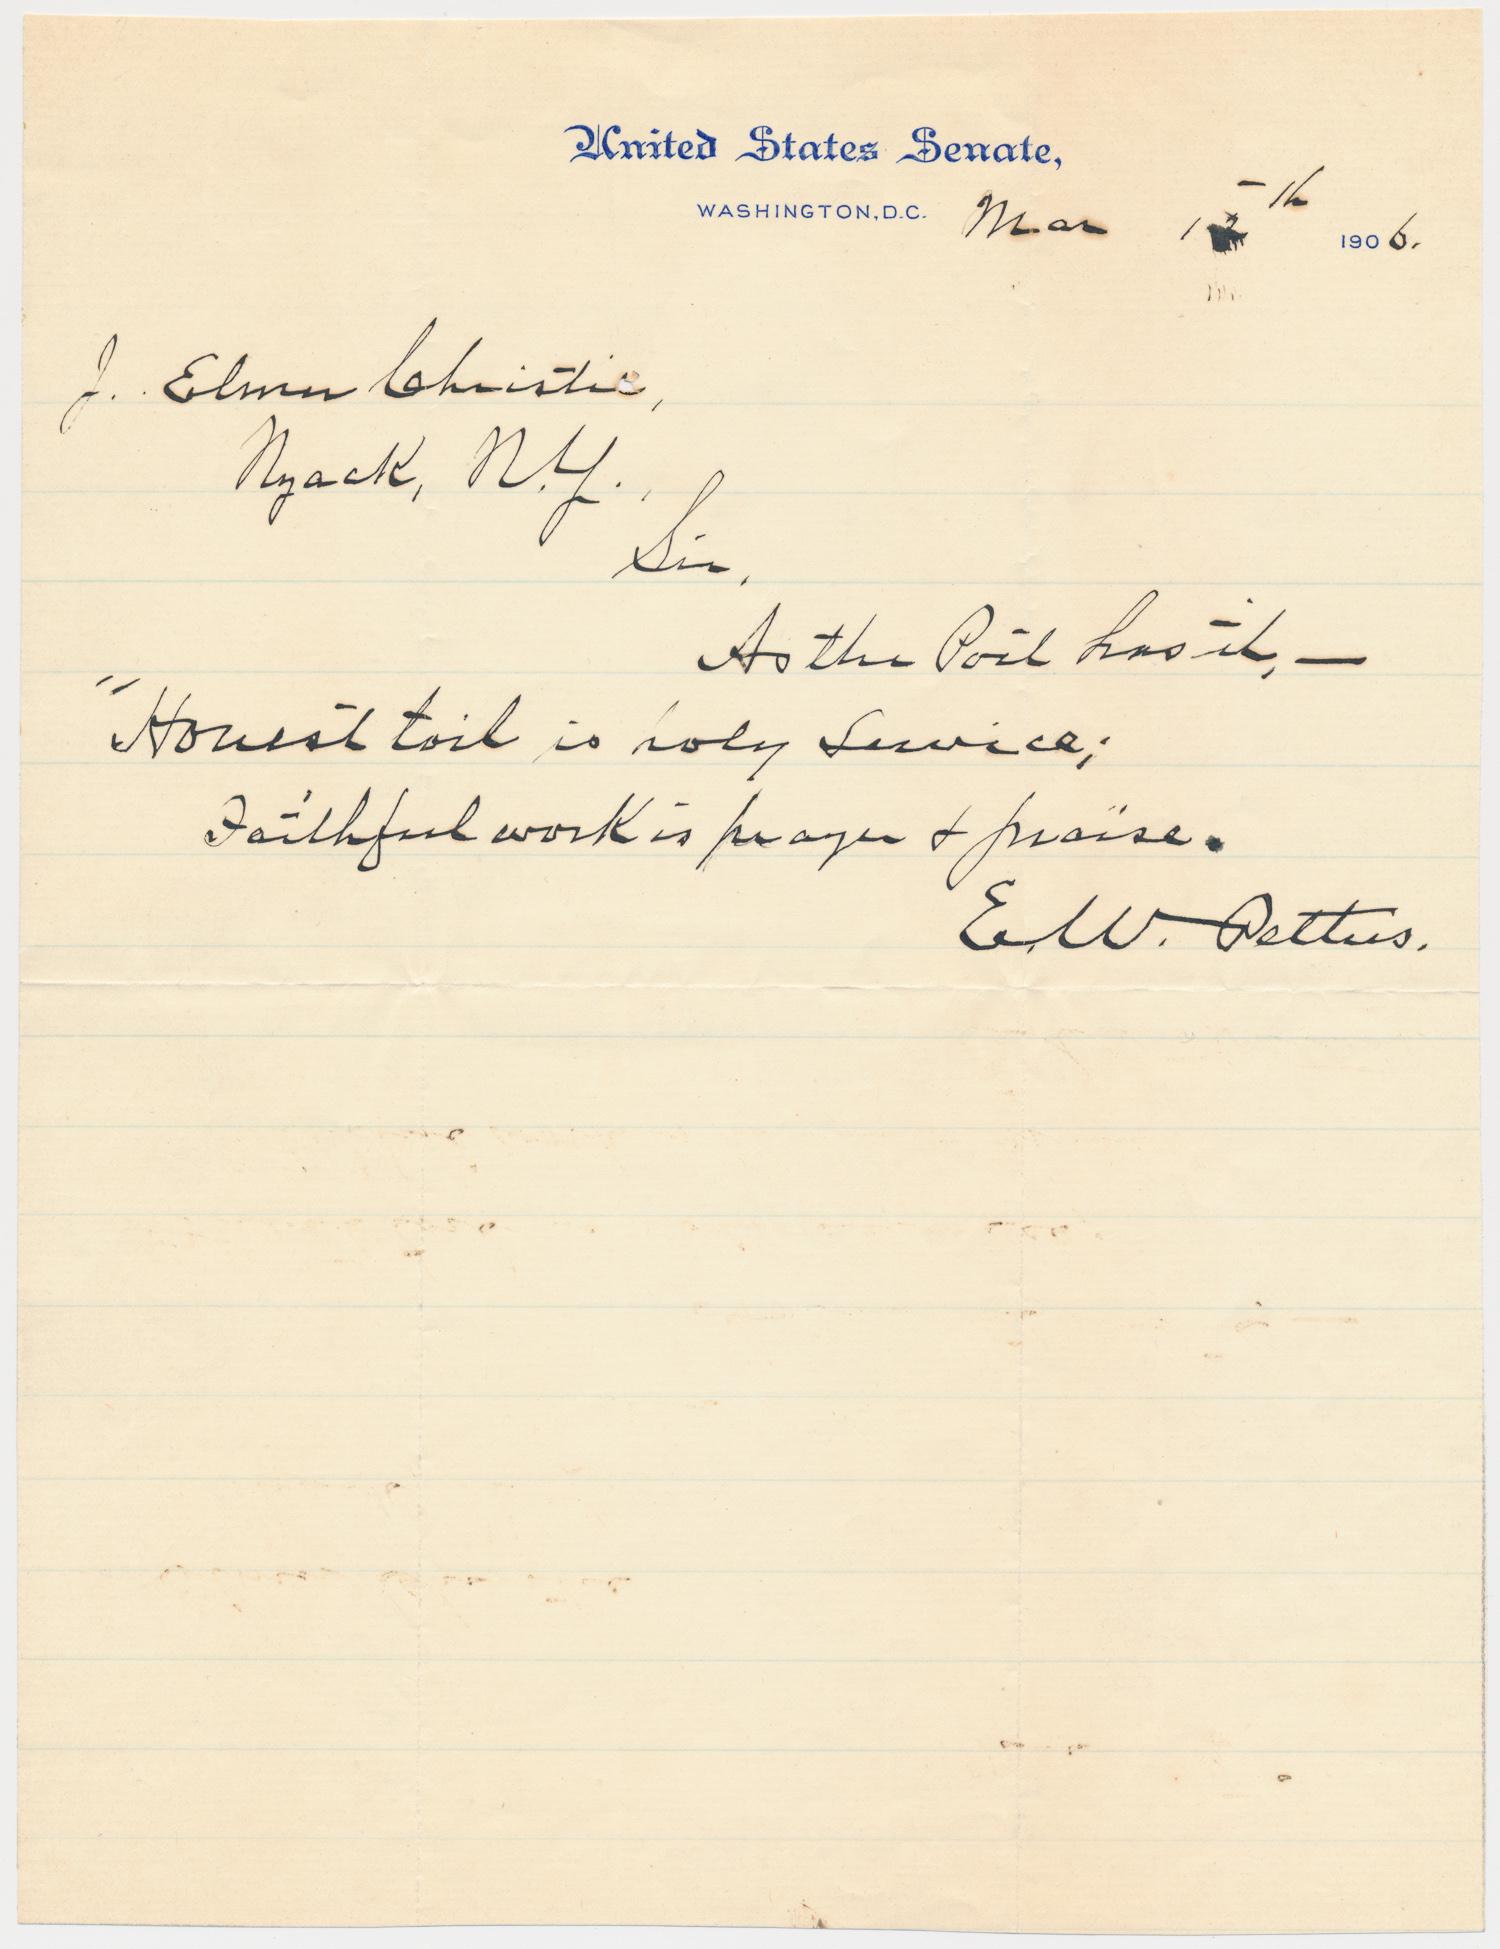 United States Senate,
WASHINGTON, D.C. Mar 12th 1906.
J. Elmer Christie,
Nyack, N.Y.,
Sir,
As the Poet has it, —
"Honest toil is holy service;
Faithful work is prayer & praise.
E. W. Pettus.